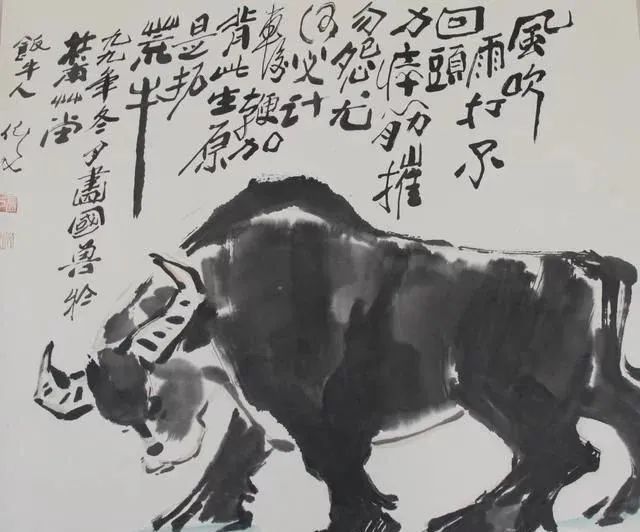 風吹
雨打不
回頭
力瘁筋摧
勿怨尤
何必計
車後鞭加
背此生原
是拓
荒牛
九九年冬夕畫國兽於
艸堂
飯牛人